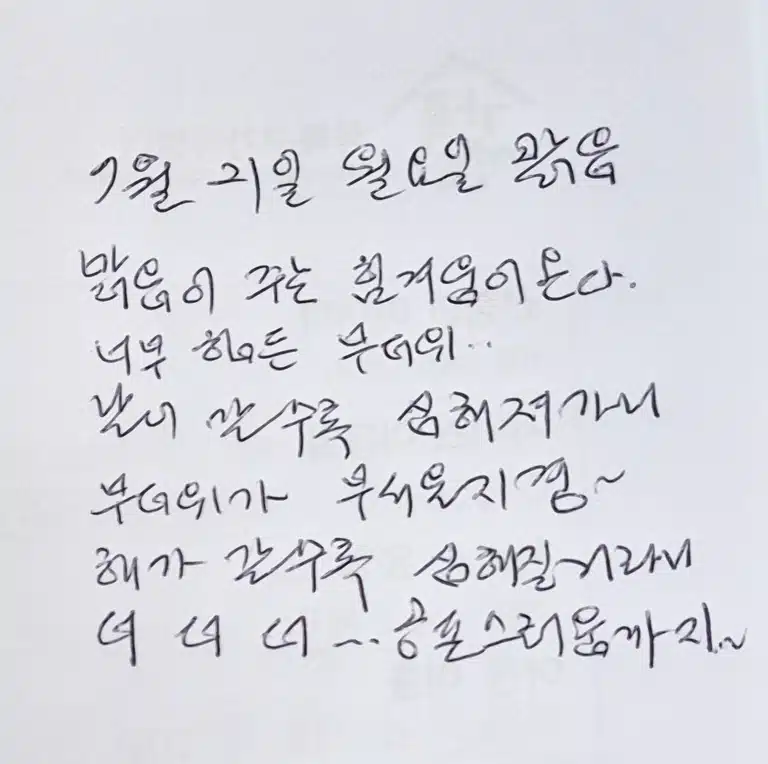 7월 21일 월요일 맑음
맑음이 주는 힘겨움이 온다.
너무 힘든 무더위..
날이 갈수록 심해져가니
무더위가 무서운지경~
해가 갈수록 심해질거라니
더 더 더 ... 공포스러움까지~